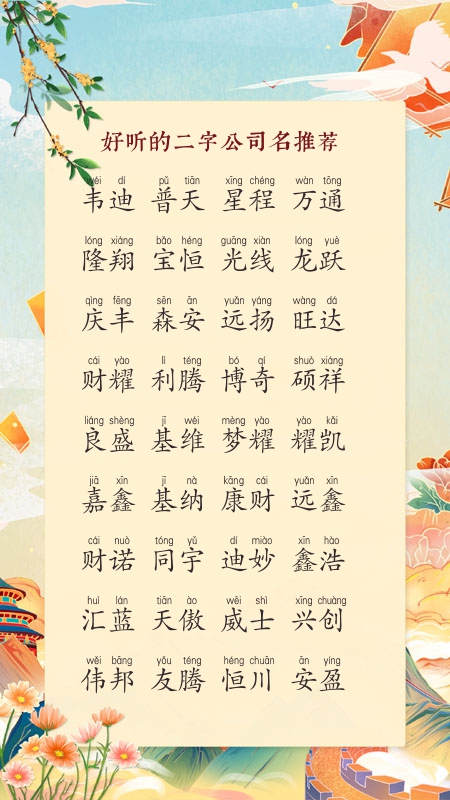 好听的二字公司名推荐
wéi dí pǔ tiān xīng chéng wàn tōng
韦迪 普天 星程 万通
lóng xiáng bǎo héng guāng xiàn lóng yuè
隆翔 宝恒 光线 龙跃
qìng fēng sēn ān yuǎn yáng wàng dá
庆丰 森安 远扬 旺达
cái yào lì téng bó qí shuò xiáng
财耀 利腾 博奇 硕祥
liáng shèng jī wéi mèng yào yào kǎi
良盛 基维 梦耀 耀凯
jiā xīn jī nà kāng cái yuǎn xīn
嘉鑫 基纳 康财 远鑫
cái nuò tóng yǔ dí miào xīn hào
财诺 同宇 迪妙 鑫浩
huì lán tiān ào wēi shì xīng chuàng
汇蓝 天傲 威士 兴创
wěi bāng yǒu téng héng chuān ān yíng
伟邦 友腾 恒川 安盈